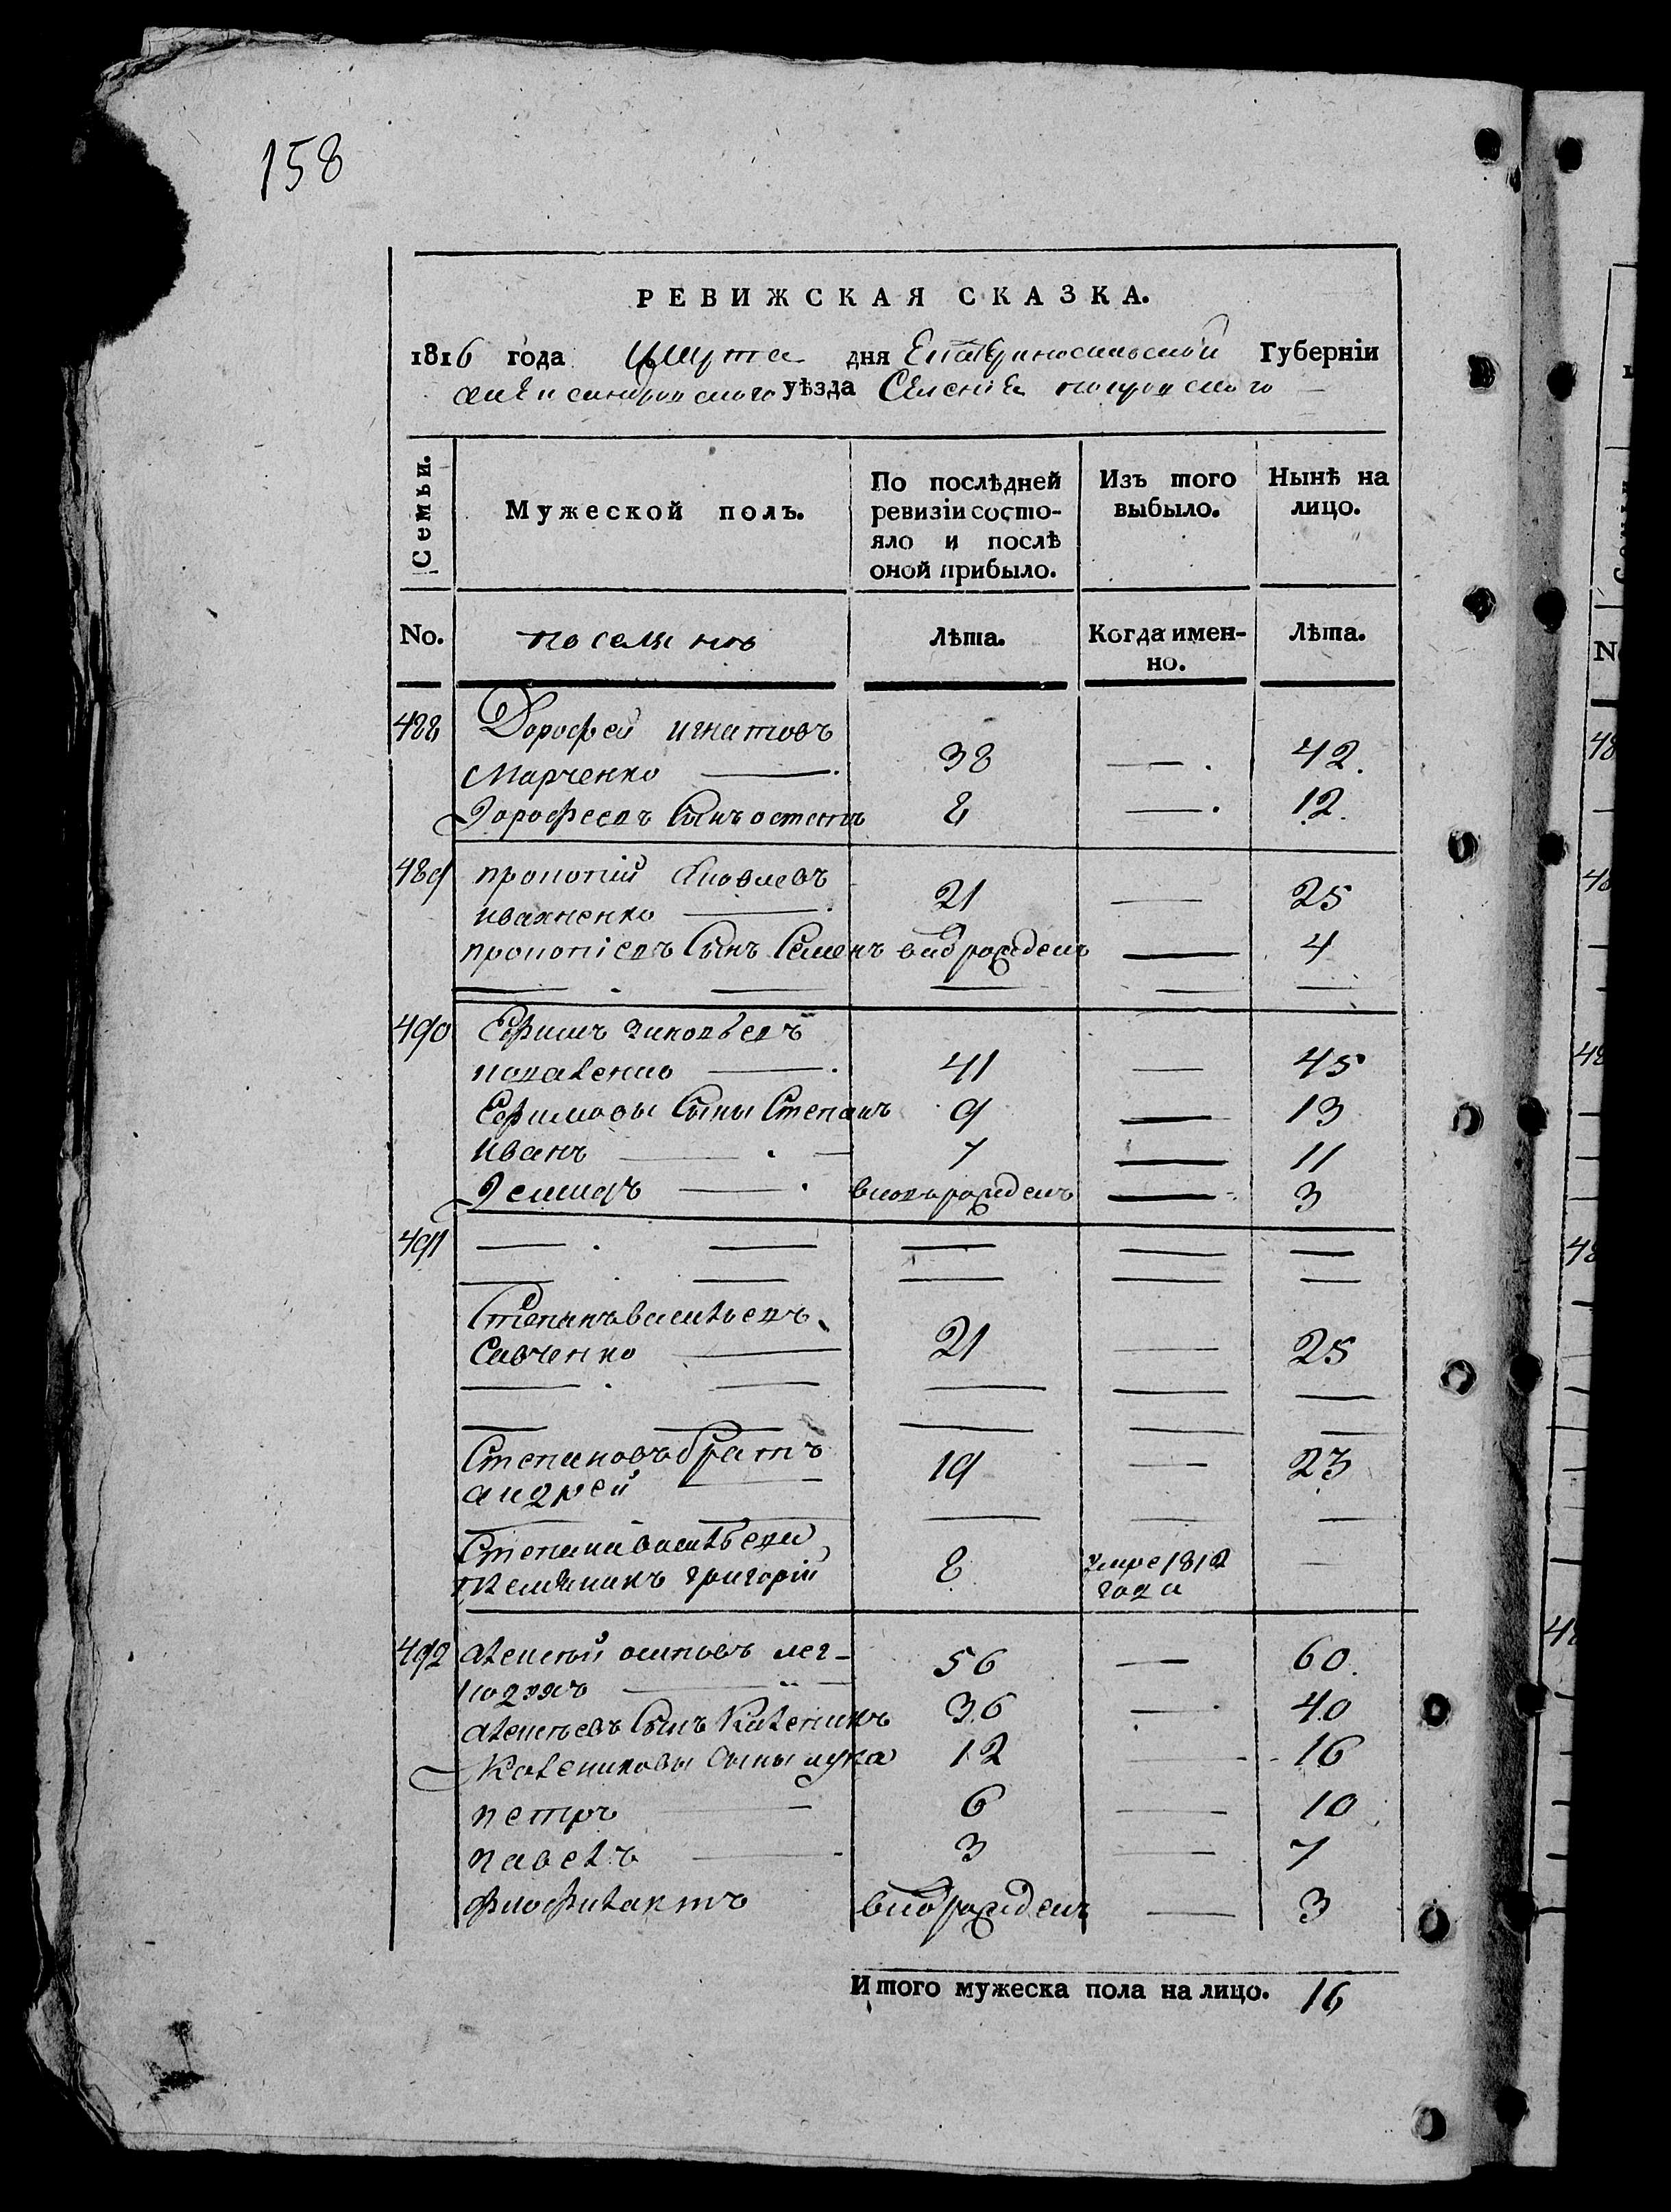 158
РЕВИЖСКАЯ СКАЗКА.
1816 года Марта дня Екатеринославской Губерніи
александровского уѣзда Селенія покровского
Семьи. Мужеской полъ. По послѣдней ревизіи состояло и послѣ оной прибыло. Изъ того выбыло. Нынѣ на лицо.
No. поселянъ Лѣта. Когда именно. Лѣта.
488 Дорофей игнатовъ
Марченко — 38 — 42.
Дорофеевъ Сынъ остапъ 8 — 12.
489 прокопій Яковлевъ
ивахненко — 21 — 25
прокопіевъ Сынъ Семенъ внов рожденъ — 4
490 Ефимъ зиновьевъ
коваленко — 41 — 45
Ефимовы Сыны Степанъ 9 — 13
иванъ — 7 — 11
Демидъ — вновь рожденъ — 3
491
Степанъ васильевъ
Савченко — 21 — 25
Степановъ братъ
андрей — 19 — 23
Степана васильева
племяникъ григорій 8 умре 1812 года —
492 алексѣй осиповъ лег-
кодухъ — 56 — 60.
алексѣевъ Сынъ Каленикъ 36 — 40
Калениковы Сыны лука 12 — 16
петръ — 6 — 10
павелъ — 3 — 7
феофилактъ внов рожденъ — 3
Итого мужеска пола на лицо. 16